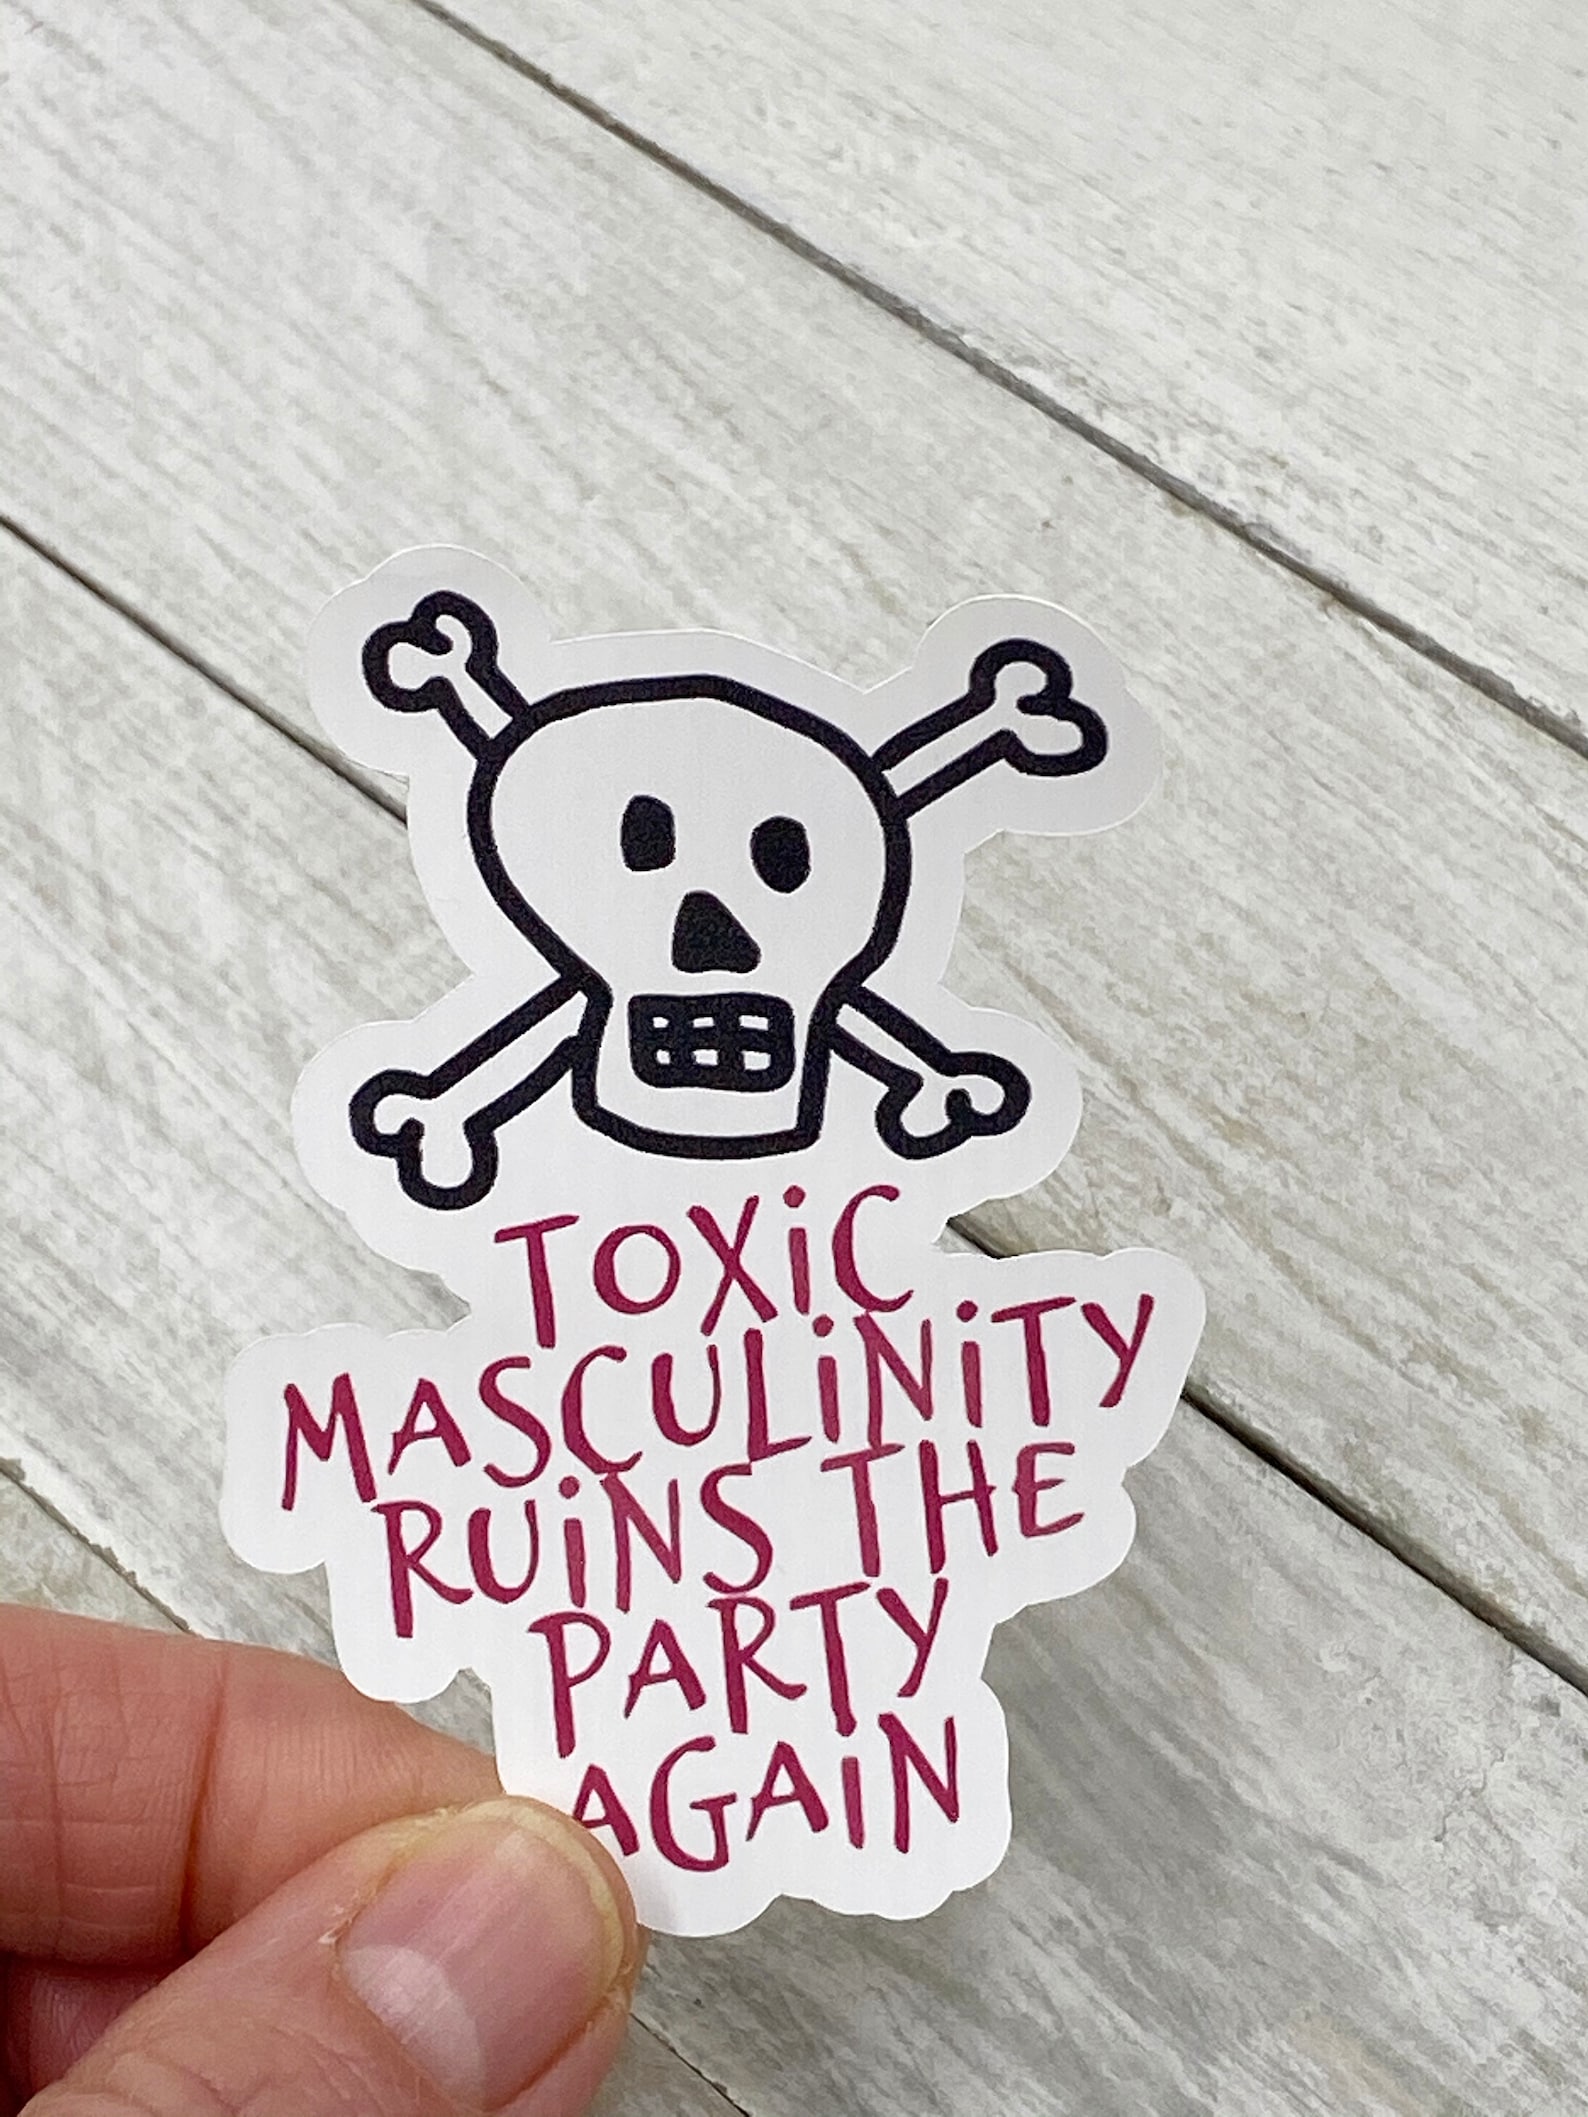 TOXiC
MASCULiNiTY
RUiNS THE
PARTY
AGAiN